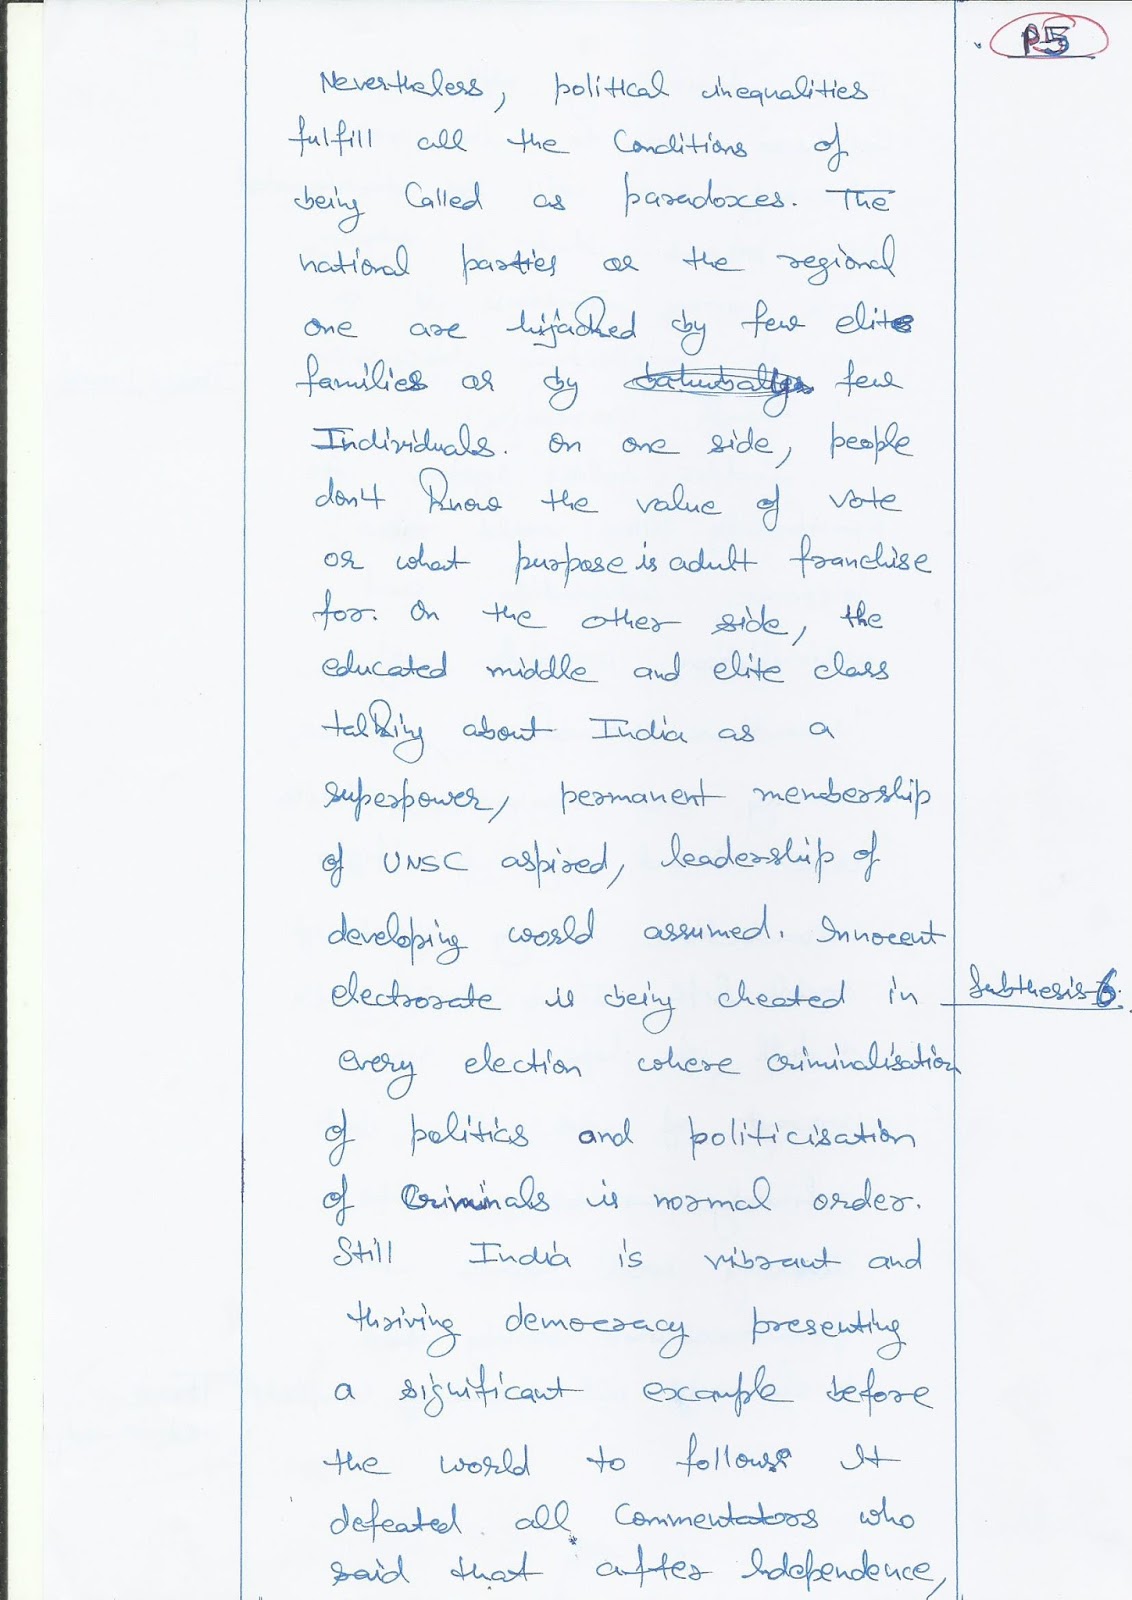 P5
Nevertheless, political inequalities
fulfill all the Conditions of
being Called as paradoxes. The
national parties or the regional
one are hijacked by few elite
families or by few
Individuals. On one side, people
don't know the value of vote
or what purpose is adult franchise
for. On the other side, the
educated middle and elite class
talking about India as a
superpower, permanent membership
of UNSC aspired, leadership of
developing world assumed. Innocent
electrorate is being cheated in
Subthesis-6.
every election where criminalisation
of politics and politicisation
of Criminals is normal order.
Still India is vibrant and
thriving democracy presenting
a significant example before
the world to follow. It
defeated all Commentators who
said that after Independence,